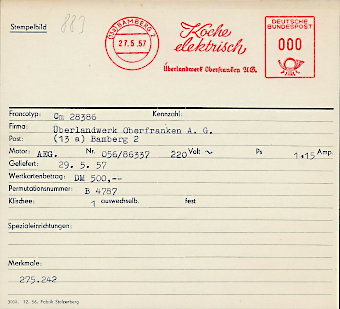 Stempelbild
883
(13a) BAMBERG 2
27.5.57
Koche
elektrisch
Überlandwerk Oberfranken A.G.
DEUTSCHE
BUNDESPOST
000
Francotyp: Cm 28386 Kennzahl:
Firma: Überlandwerk Oberfranken A. G.
Post: (13 a) Bamberg 2
Motor: AEG. Nr. 056/86337 220 Volt ~ Ps 1.15 Amp.
Geliefert: 29. 5. 57
Wertkartenbetrag: DM 500,--
Permutationsnummer: B 4787
Klischee: 1 auswechselb. fest
Spezialeinrichtungen:
Merkmale:
275.242
3000. 12. 56. Fabrik Stolzenberg